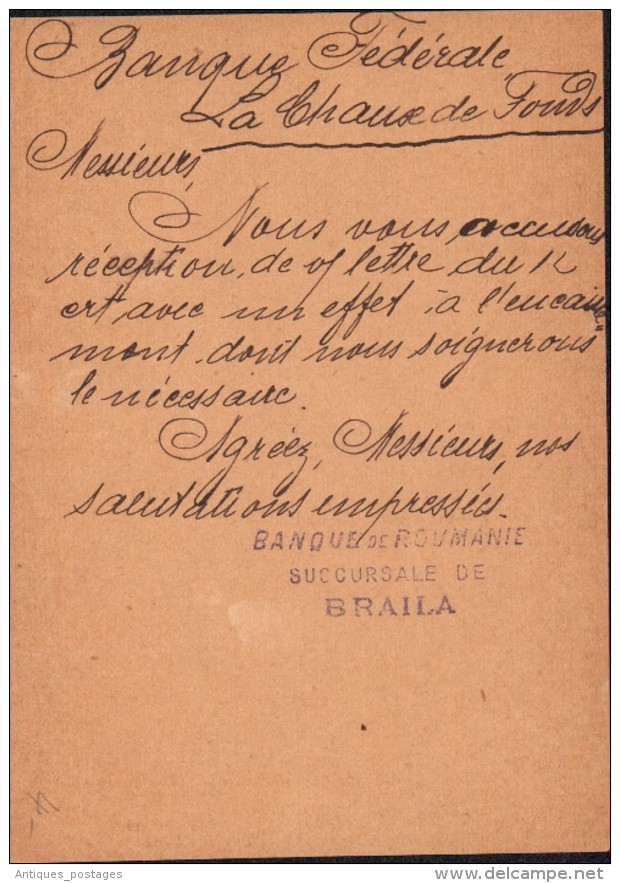 Banque Fédérale
La Chaux de Fonds
Messieurs,
Nous vous accusons
réception, de v/ lettre du 12
crt, avec un effet, à l'encaisse
ment, dont nous soignerons
le nécessaire.
Agréez, Messieurs, nos
salutations empressées.
BANQUE DE ROUMANIE
SUCCURSALE DE
BRAILA
Antiques_postages
delcampe.net